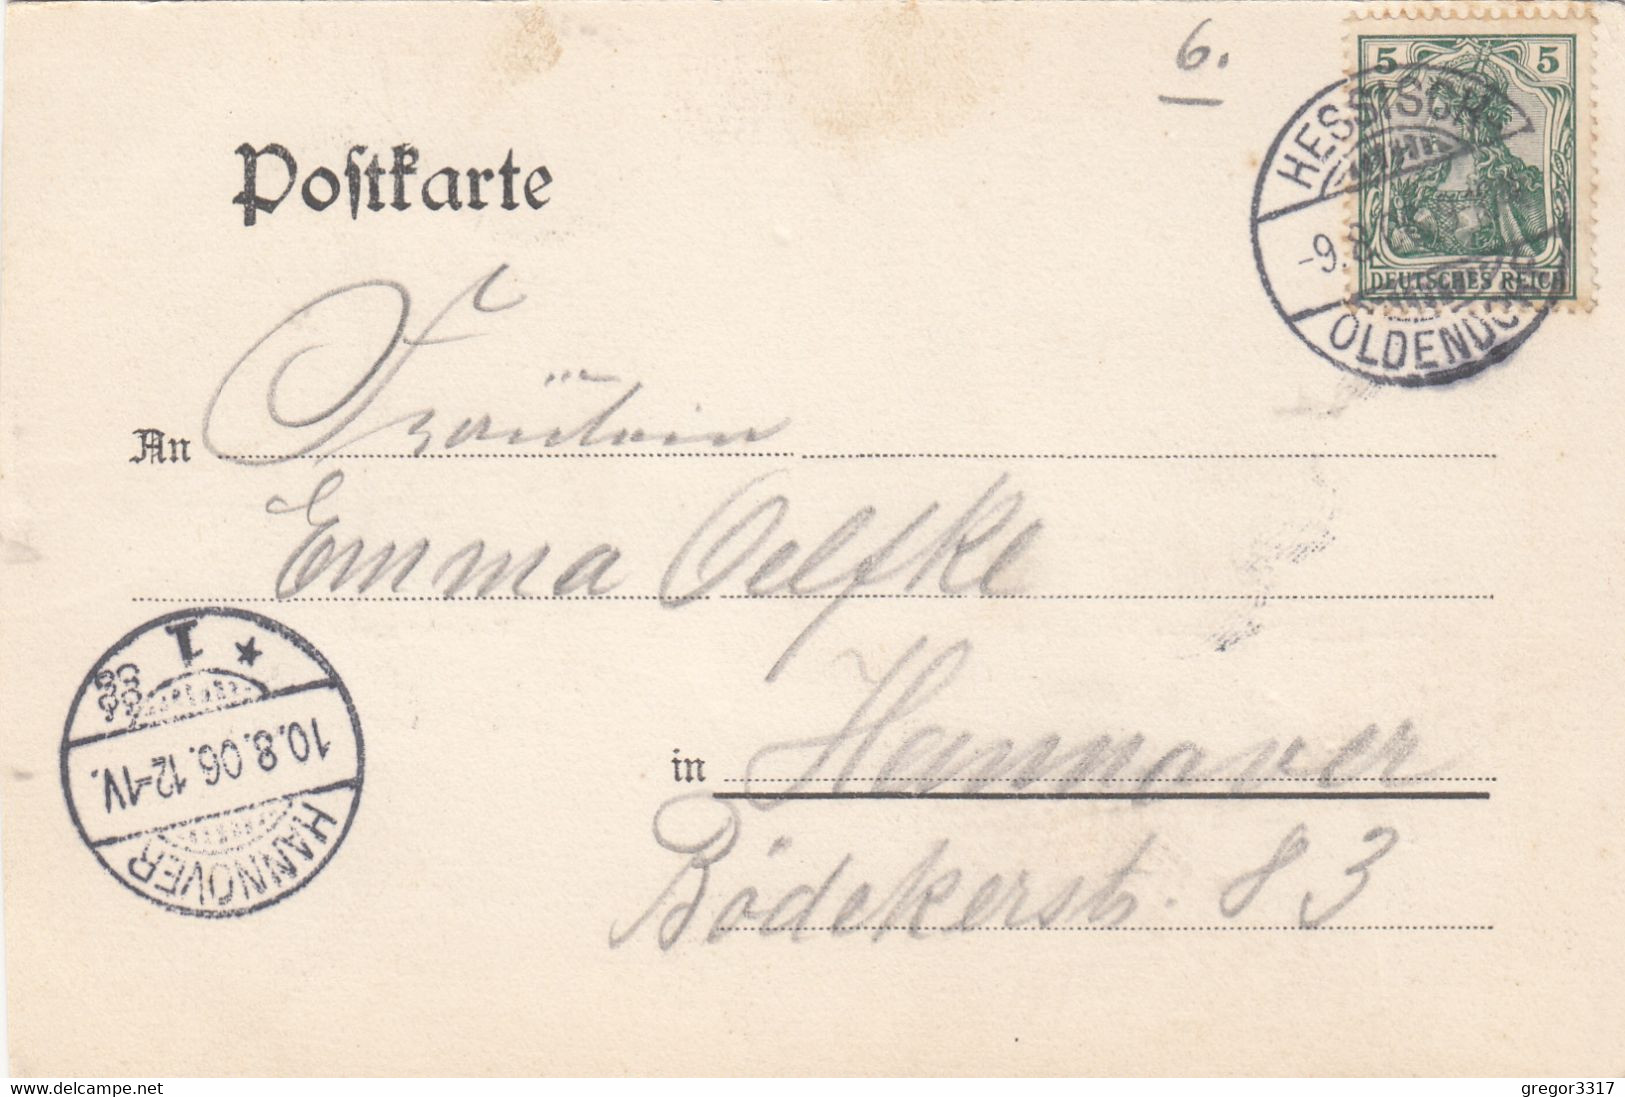 6.
5 5
HESSISCH
-9.8.
DEUTSCHES REICH
OLDENDO
Postkarte
An Fräulein
Emma Oelfke
1 *
10.8.06.12-1V.
HANNOVER
in Hannover
Bödekerstr. 83
www.delcampe.net
gregor3317